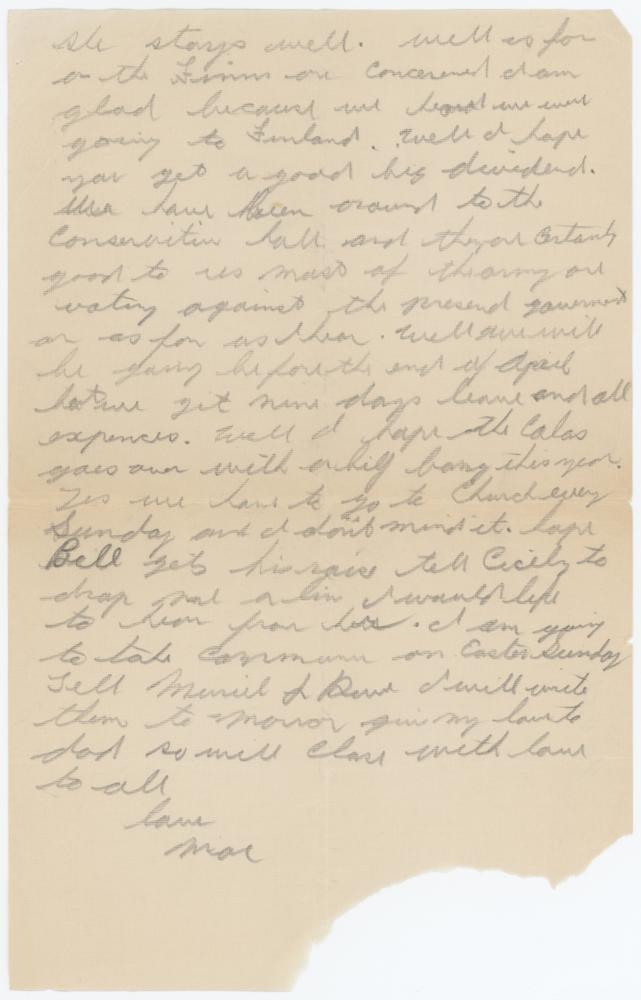 she stays well. well as for
as the Finns are Concerened I am
glad because we heard we were
going to Finland. Well I hope
you get a good big dividend.
We have been around to the
Conservitive hall and they are Certanly
good to us most of the army are
voting against the presend goverment
or as far as I hear. Well we will
be going before the end of April
but we git nine days leave and all
expences. Well I hope the
goes over with a big bang this year.
Yes we have to go to Church every
Sunday and I don't mind it. hope
Bill gets his raise tell Cicely to
drop me a line I would like
to hear from her. I am going
to take Commun on Easter Sunday
Tell Muriel & Dave I will write
them to morror give my love to
dad so will close with love
to all
love
Mac